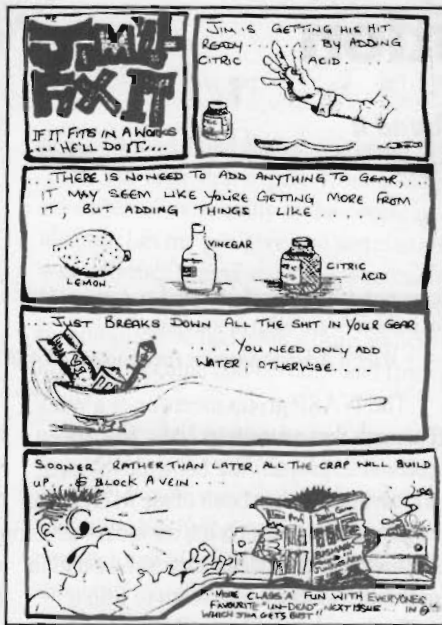 JIM'LL
FIX IT
IF IT FITS IN A WORKS
....HE'LL DO IT....
JIM IS GETTING HIS HIT
READY.......... BY ADDING
CITRIC ACID.
...THERE IS NO NEED TO ADD ANYTHING TO GEAR,...
IT MAY SEEM LIKE YOU'RE GETTING MORE FROM
IT, BUT ADDING THINGS LIKE....
LEMON.
VINEGAR
CITRIC
ACID
...JUST BREAKS DOWN ALL THE SHIT IN YOUR GEAR
....YOU NEED ONLY ADD
WATER OTHERWISE.
SOONER RATHER THAN LATER, ALL THE CRAP WILL BUILD
UP...& BLOCK A VEIN.
MORE CLASS 'A' FUN WITH EVERYONES
FAVOURITE "UN-DEAD", NEXT ISSUE IN
WHICH JIM GETS BUST"